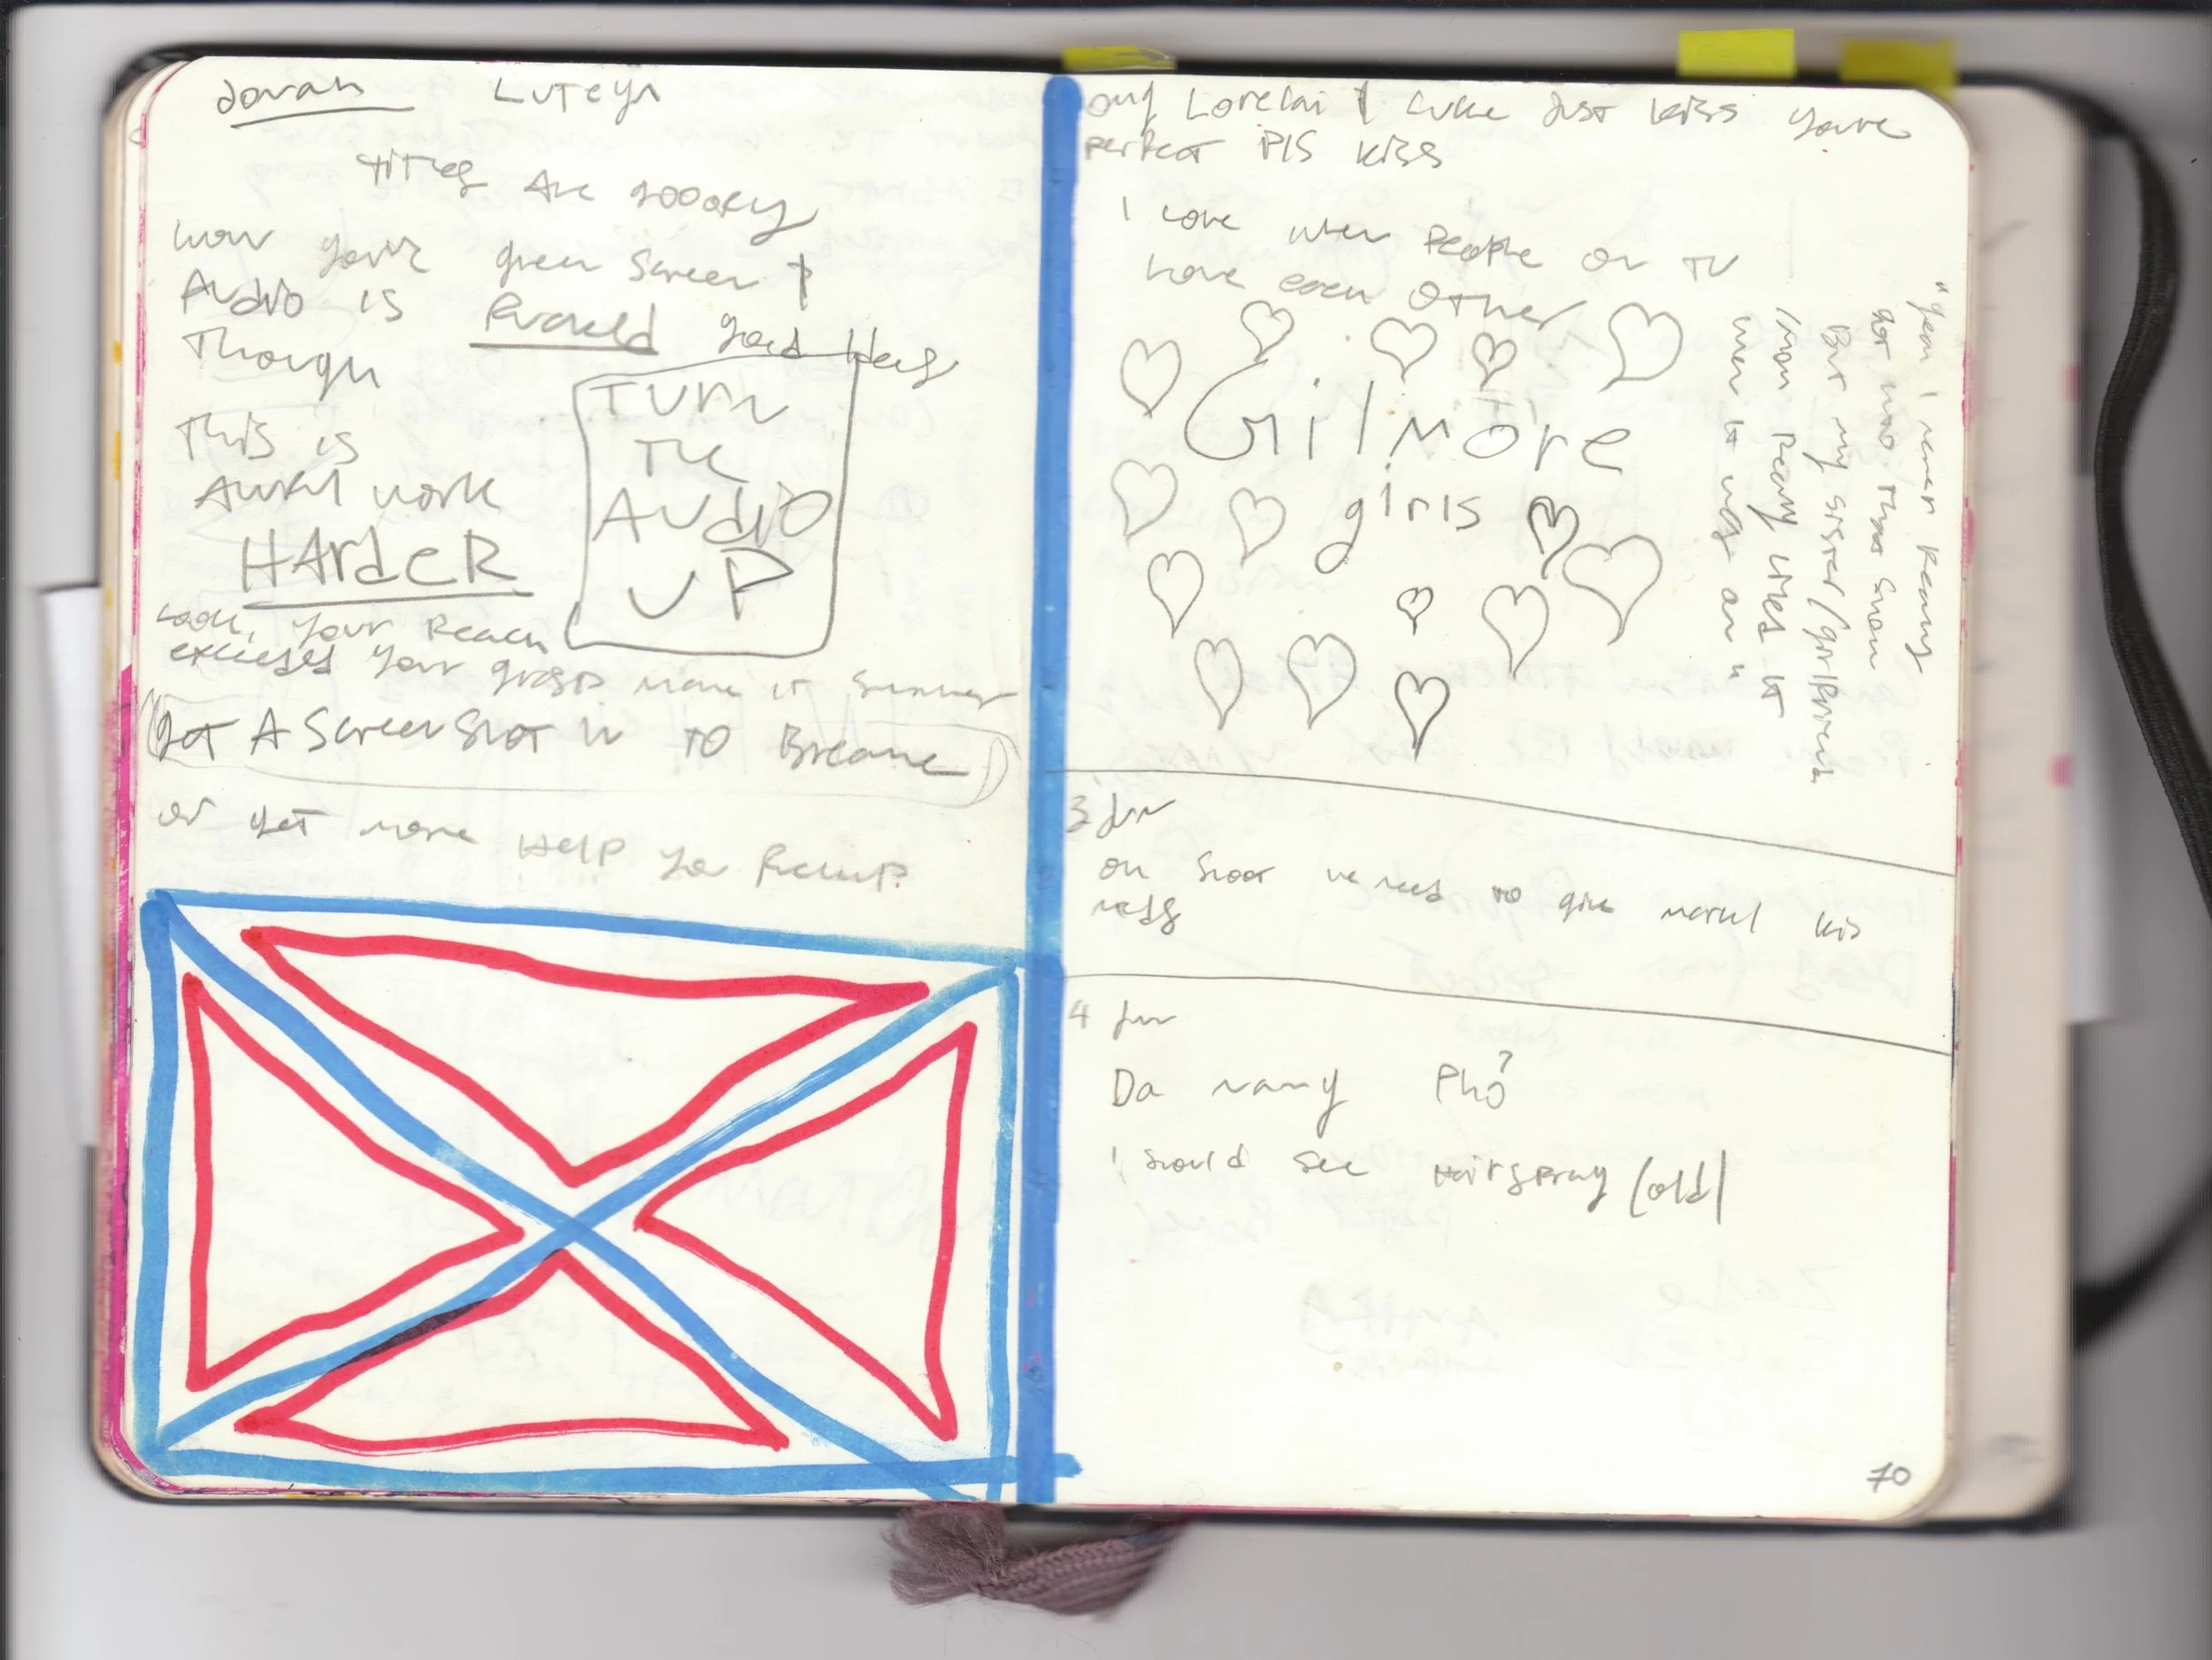 Luteyn
titles are goooky
wow your green screen &
Audio is
good ideas
Though
This is
Awful work
HArdeR
TURN
THE
AUDIO
UP
look, your Reach
exceeds your grasp make it
got A Screen Shot in TO
or get more Help you
omg Lorelai & Luke Just kiss you're
perfect PLS kiss
I love when People on TV
love each Other
Gilmore
girls
"yeah I never Really
got into that show
But my sister/girlfriend
Really likes it
when it was on"
3 Jun
on shoot we need to give
4 Jun
Da Phở
I should see Hairspray (old)
70